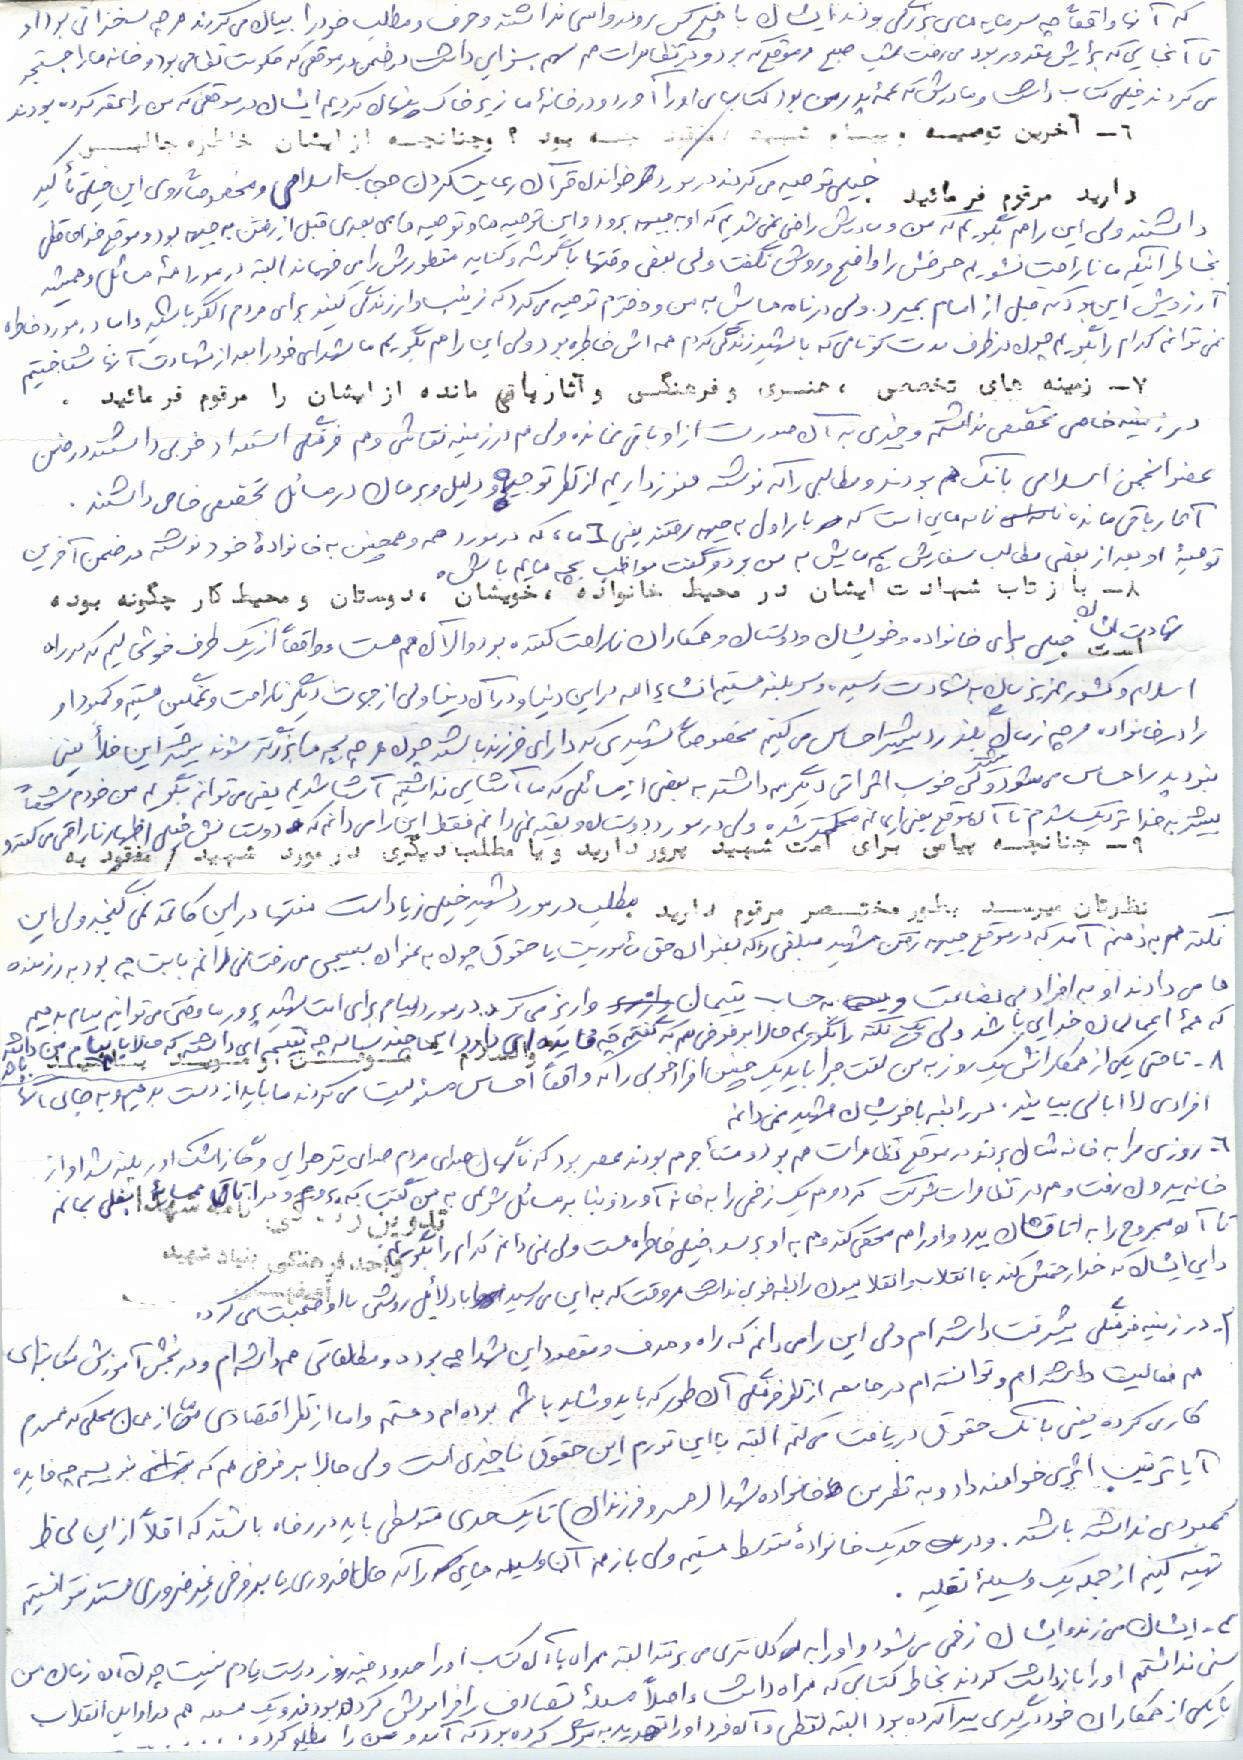 که آنها واقعاً چه سرمایه های بزرگی بودند ایشان با هیچ کس رودرواسی نداشتند و حرف و مطلب خود را بیان می کردند هر چه سخنرانی بود او
تا آنجایی که برایش مقدور بود می رفت شب صبح هر موقع که بود و در تظاهرات هم سهم بسزایی داشت در ضمن در موقعی که حکومت نظامی بود و خانه ها را جستجو
می کردند خیلی کتاب داشت و مادرش که عمه پدر من بود کتابهای او را آورد و در خانه ما زیر خاک پنهان کردیم ایشان در موقعی که من را عقد کرده بودند
٦- آخرین توصیه و پیام شهید / مفقود چه بود ؟ وچنانچه از ایشان خاطره جالبی
دارید مرقوم فرمائید . خیلی توصیه می کردند در مورد خواندن قرآن رعایت کردن حجاب اسلامی و مخصوصاً روی این خیلی تأکید
داشتند ولی این را هم بگویم که من و مادرش راضی نمی شدیم که او به جبهه برود و این توصیه ها و توصیه های بعدی قبل از رفتن به جبهه بود و موقع خداحافظی
بخاطر اینکه ما ناراحت نشویم حرفش را واضح و روشن نگفت ولی بعضی وقتها با گوشه و کنایه منظورش را می فهماند البته در مورد همه مسائل و همیشه
آرزویش این بود که قبل از امام بمیرد. ولی در نامه هایش به من و دخترم توصیه می کرد که زینب وار زندگی کنید برای مردم الگو باشید و اما در مورد خاطره
نمی توانم کدام را بگویم چون در ظرف مدت کوتاهی که با شهید زندگی کردم همه اش خاطره بود ولی این را هم بگویم ما شهدای خود را بعد از شهادت آنها شناختیم
٧- زمینه های تخصصی ، هنری و فرهنگی و آثار باقی مانده از ایشان را مرقوم فرمائید .
در زمینه خاصی تخصصی نداشتم و چیزی به آن صورت از او باقی نمانده ولی هم در زمینه نقاشی و هم فرهنگی استعداد خوبی داشتند در ضمن
عضو انجمن اسلامی بانک هم بودند و مطالبی را که نوشته هنوز داریم از نظر توجیه و دلیل و برهان در مسائل تخصص خاصی داشتند .
آثار باقی مانده نامه هایی است که بار اول به جبهه رفتند یعنی ٦ ماه که در مورد همه و همچنین به خانواده خود نوشته در ضمن آخرین
توصیه او بعد از بعضی مطالب سفارش بچه هایش به من بود و گفت مواظب بچه هایم باش.
٨- بازتاب شهادت ایشان در محیط خانواده ، خویشان ، دوستان و محیط کار چگونه بوده
است شهادت ایشان خیلی برای خانواده و خویشان و دوستان و همکاران ناراحت کننده بود و الآن هم هست و واقعاً از یک طرف خوشحالیم که در راه
اسلام و کشور عزیزمان به شهادت رسیده و سربلند هستیم انشاء الله در این دنیا و در آن دنیا ولی از جهات دیگر ناراحت و غمگین هستیم و کمبود او
را در خانواده هر چه زمان بگذرد بیشتر احساس می کنیم مخصوصاً شهیدی که دارای فرزند باشد چون هر چه بچه ها بزرگتر شوند بیشتر این خلأ یعنی
نبود پدر احساس می شود ولی خوب اثراتی دیگر هم داشته به بعضی از مسائلی که ما آشنایی نداشتیم آشنا شدیم یعنی می توانم بگویم من خودم شخصاً
بیشتر به خدا نزدیک شدم تا آن موقع یعنی ایمانم محکمتر شده ولی در مورد دوستان و بقیه نمی دانم فقط این را می دانم که دوستانش خیلی اظهار ناراحتی می کنند و
٩- چنانچه پیامی برای امت شهید پرور دارید و یا مطلب دیگری در مورد شهید / مفقود به
نظرتان میرسد بطور مختصر مرقوم دارید مطلب در مورد شهید خیلی زیاد است منتها در این کاغذ نمی گنجد ولی این
نکته هم به ذهنم آمد که در موقع جبهه رفتن شهید مبلغی را که بعنوان حق مأموریت یا حقوق چون به عنوان بسیجی می رفت نمی دانم بابت چه بود به رزمنده
ها می دادند او به افراد بی بضاعت و به حساب یتیمان واریز می کرد. در مورد پیام برای امت شهید پرور ما وقتی می توانیم پیام بدهیم
که همه اعمالمان خدایی باشد ولی یک نکته را بگویم حالا بر فرض هم که گفتم چه فایده ای دارد این چند ساله چه نتیجه ای داشته که حالا پیام من داشته باشد
والسلام موفق و مؤید باشید
٨- تا حتی یکی از همکارانش یک روز به من گفت چرا باید یک چنین افراد خوبی را که واقعاً احساس مسئولیت می کردند ما باید از دست بدهیم و به جای آنها
افرادی لاابالی بیایند. در رابطه با خویشان شهید نمی دانم
٦- روزی مرا به خانه شان بردند در موقع تظاهرات هم بود و مستأجر هم بودند عصر بود که ناگهان صدای مردم صدای تیر هوایی و گاز اشک آور بلند شد او از
خانه بیرون رفت و هم در تظاهرات شرکت کرد و هم یک زخمی را به خانه آورد و بنا به مسائل شرعی به من گفت که برو و در اتاق همسایه بغلی بمانم
تا آن مجروح را به اتاقشان ببرد و او را هم مخفی کند و هم به او برسد. خیلی خاطره هست ولی نمی دانم کدام را بگویم
تدوین زندگی نامه شهدا
واحد فرهنگی بنیاد شهید
دایی ایشان که خدا رحمتش کند با انقلاب و انقلابیون رابطه خوبی نداشت هر وقت که به این می رسید با دلائل روشنی با او صحبت می کرد.
٣- در زمینه فرهنگی پیشرفت داشته ام ولی این را می دانم که راه و هدف و مقصود این شهدا چه بود و مطالعاتی هم داشته ام و در بخش آموزش مکاتبه ای
هم فعالیت داشته ام و توانسته ام در جامعه از نظر فرهنگی آن طور که باید و شاید باشم بوده ام و هستم و اما از نظر اقتصادی من از همان محلی که همسرم
کار می کرده یعنی بانک حقوق دریافت می کنم البته با این تورم این حقوق ناچیزی است ولی حالا بر فرض هم که بنویسم چه فایده
آیا ترتیب اثری خواهند داد و به نظر من خانواده شهدا (همسر و فرزندان) تا یک حدی متوسطی باید در رفاه باشند که اقلاً از این لحاظ
کمبودی نداشته باشند . و در حد یک خانواده متوسط هستیم ولی باز هم آن وسیله هایی را که حالا ضروری یا بر فرض غیر ضروری هستند نتوانستیم
تهیه کنیم از جمله یک وسیله نقلیه .
ایشان می زند و ایشان زخمی می شود و او را به کلانتری می برند البته همراه با آن کتاب او را حدود چند روز درست یادم نیست چون آن زمان من
سنی نداشتم او را بازداشت کردند بخاطر کتابی که همراه داشت و اصلاً مسئله تصادف را فراموش کرده بودند و یک مسئله هم در اوایل انقلاب
با یکی از همکاران خود درگیری پیدا کرده بود البته لفظی و آن فرد او را تهدید به مرگ کرده بود که آمد و من را مطلع کرد و . . . . . .